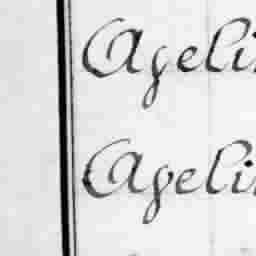 Ageli
Ageli